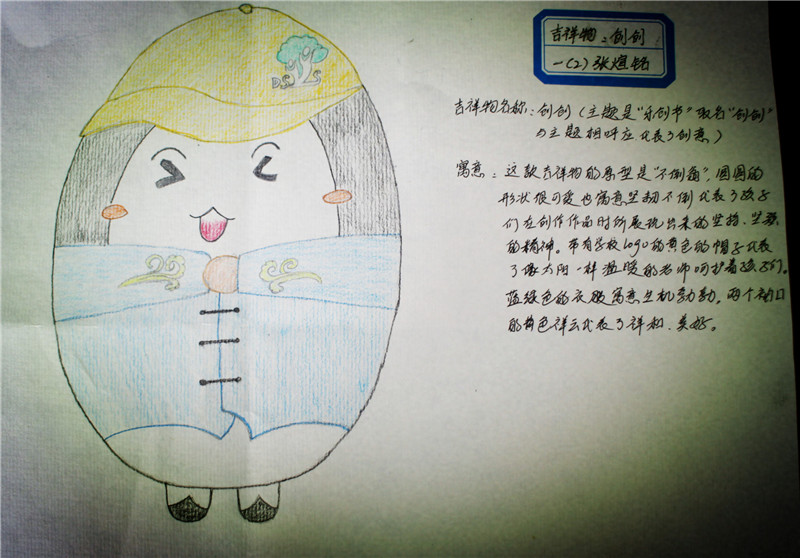 DSLS
吉祥物：创创
一(2)张煊铭
吉祥物名称：创创（主题是“乐创节”取名“创创”
与主题相呼应代表了创意）
寓意：这款吉祥物的原型是“不倒翁”，圆圆的
形状很可爱也寓意坚韧不倒代表了孩子
们在创作作品时所展现出来的坚持、坚强
的精神。带有学校logo的黄色的帽子代表
了像太阳一样温暖的老师呵护着孩子们。
蓝绿色的衣服寓意生机勃勃。两个袖口
的黄色祥云代表了祥和、美好。